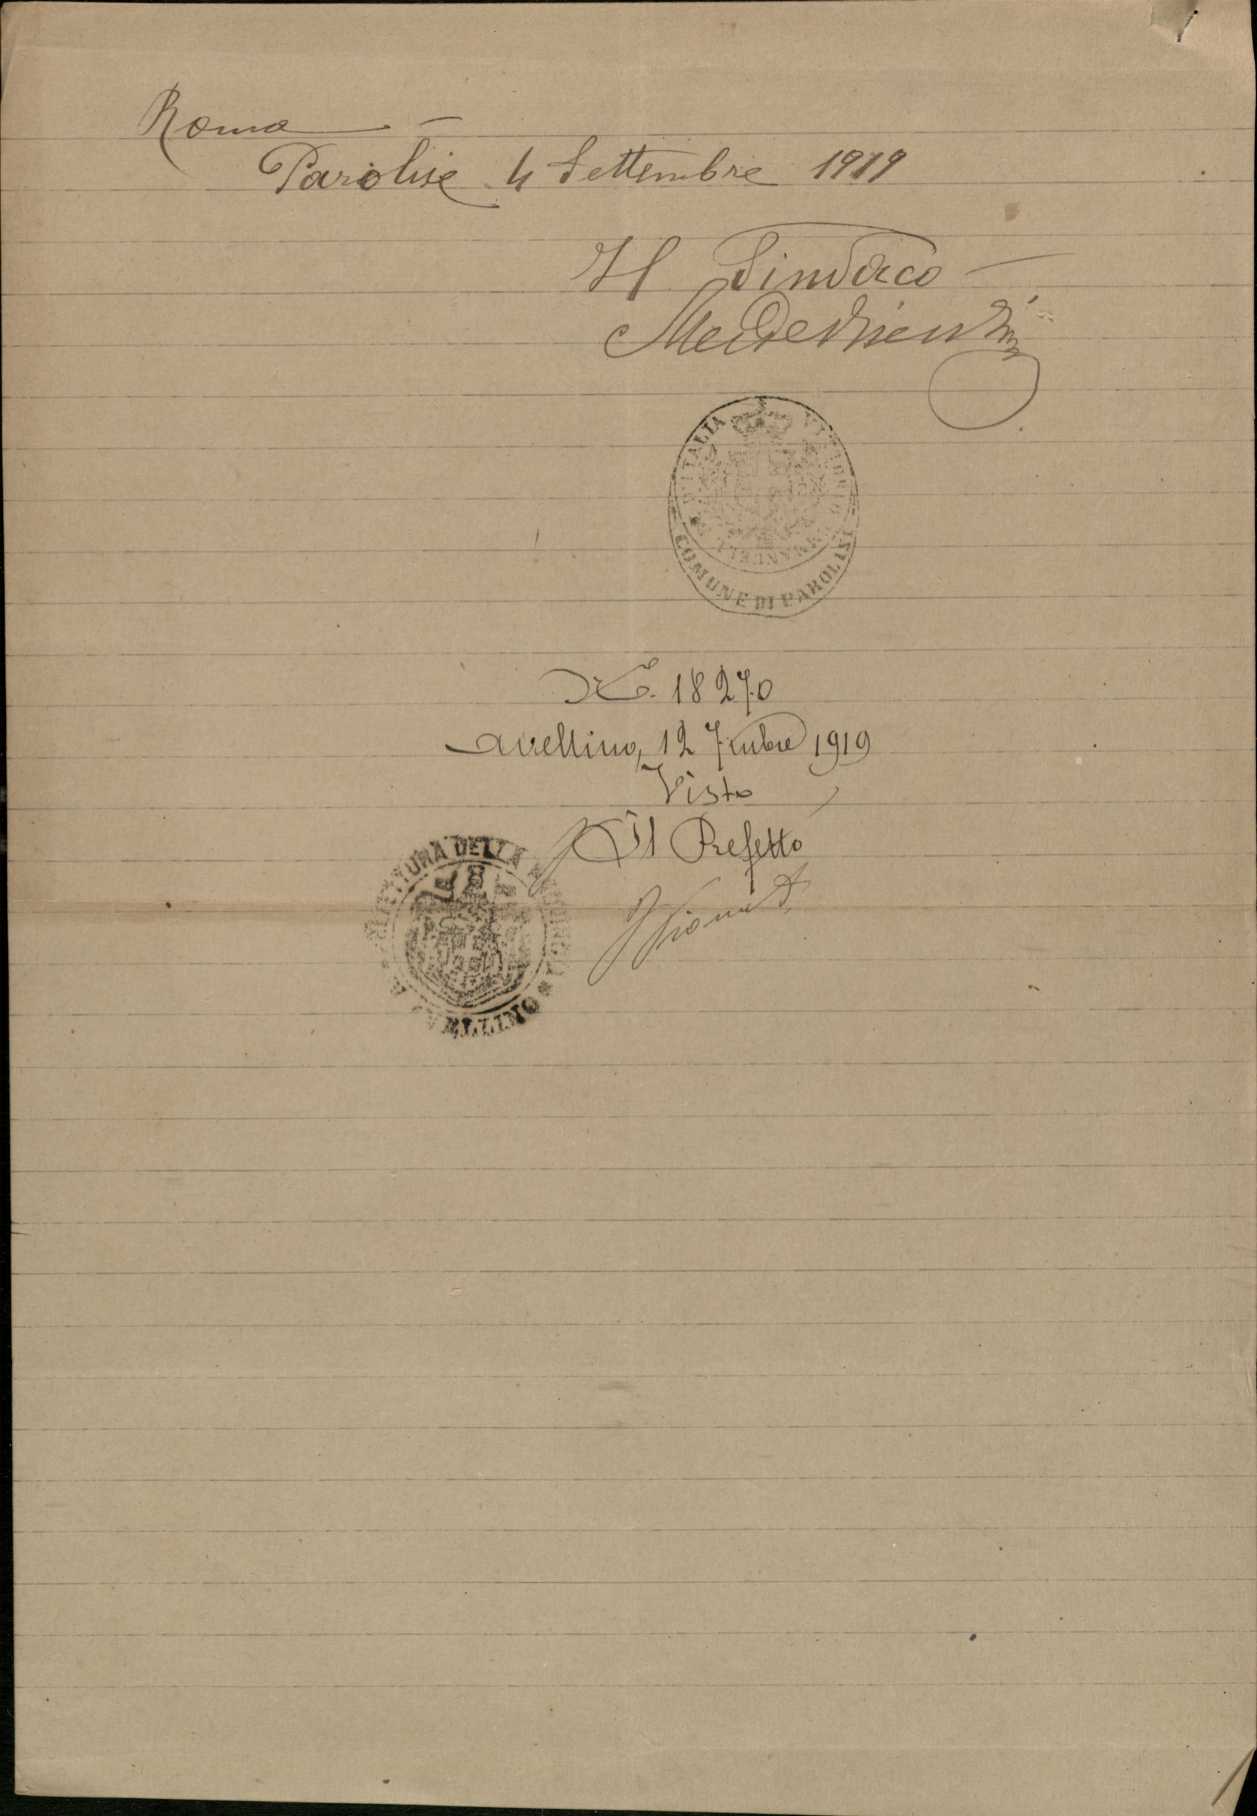 Roma
Parolise 4 Settembre 1919
Il Sindaco
VITTORIO EMANUELE
D'ITALIA
COMUNE DI PAROLISI
N. 18270
Avellino, 12 7mbre 1919
Visto
Il Prefetto
PREFETTURA DELLA
AVELLINO